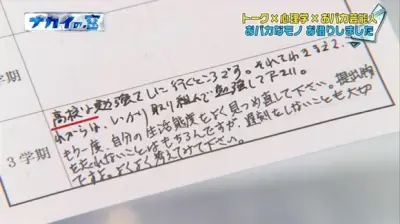 ナカイの窓
トーク×心理学×おバカ芸能人
おバカなモノ お借りしました
高校は勉強をしに行くところです。それをわきまえて、
これからは、しっかり取り組んで勉強して下さい。
もう一度、自分の生活態度をよく見つめ直して下さい。提出物
を忘れないことはもちろんですが、遅刻をしないことも大切
ですよ。よくよく考えてみて下さい。
3学期